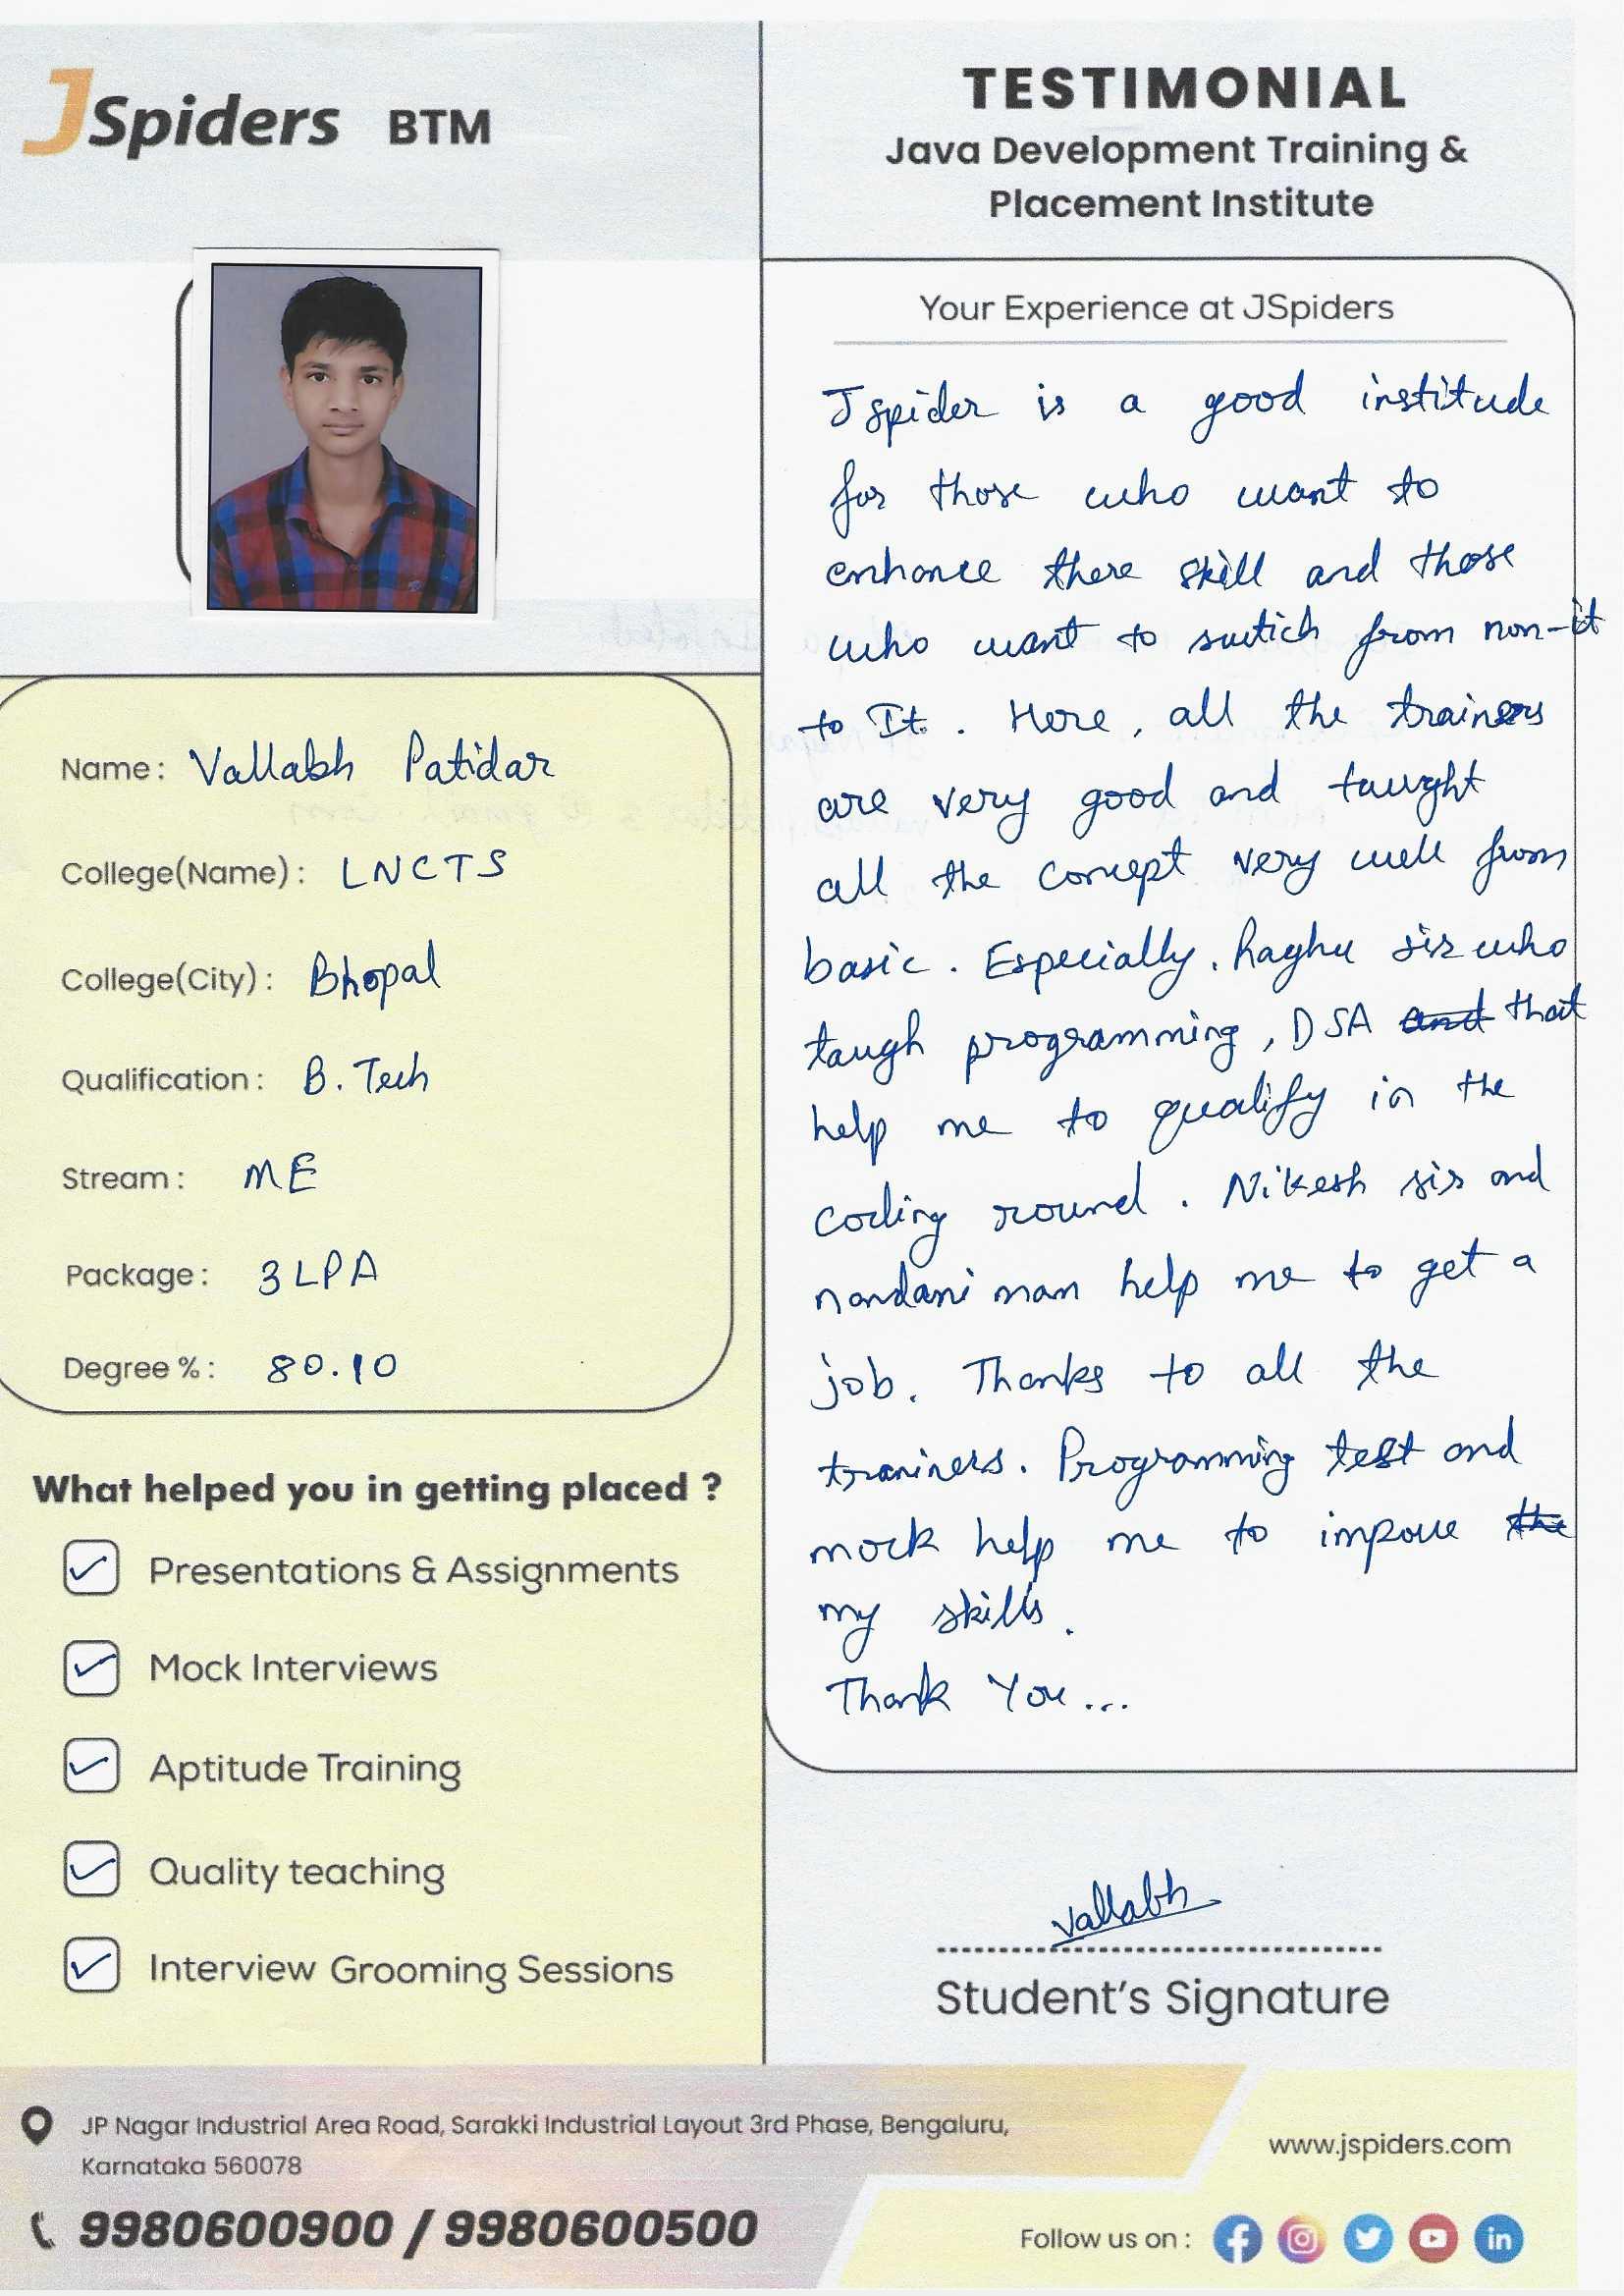 JSpiders BTM
TESTIMONIAL
Java Development Training &
Placement Institute
Name: Vallabh Patidar
College(Name): LNCTS
College(City): Bhopal
Qualification: B. Tech
Stream: ME
Package: 3 LPA
Degree %: 80.10
What helped you in getting placed ?
Presentations & Assignments
Mock Interviews
Aptitude Training
Quality teaching
Interview Grooming Sessions
Your Experience at JSpiders
Jspider is a good institude
for those who want to
enhance there skill and those
who want to swtich from non-it
to It. Here, all the trainers
are very good and taught
all the concept very well from
basic. Especially, Raghu sir who
taugh programming, DSA and that
help me to qualify in the
coding round. Nikesh sir and
nandani mam help me to get a
job. Thanks to all the
traniners. Programming test and
mock help me to impove the
my skills.
Thank You...
Vallabh
Student's Signature
JP Nagar Industrial Area Road, Sarakki Industrial Layout 3rd Phase, Bengaluru,
Karnataka 560078
9980600900 / 9980600500
www.jspiders.com
Follow us on :